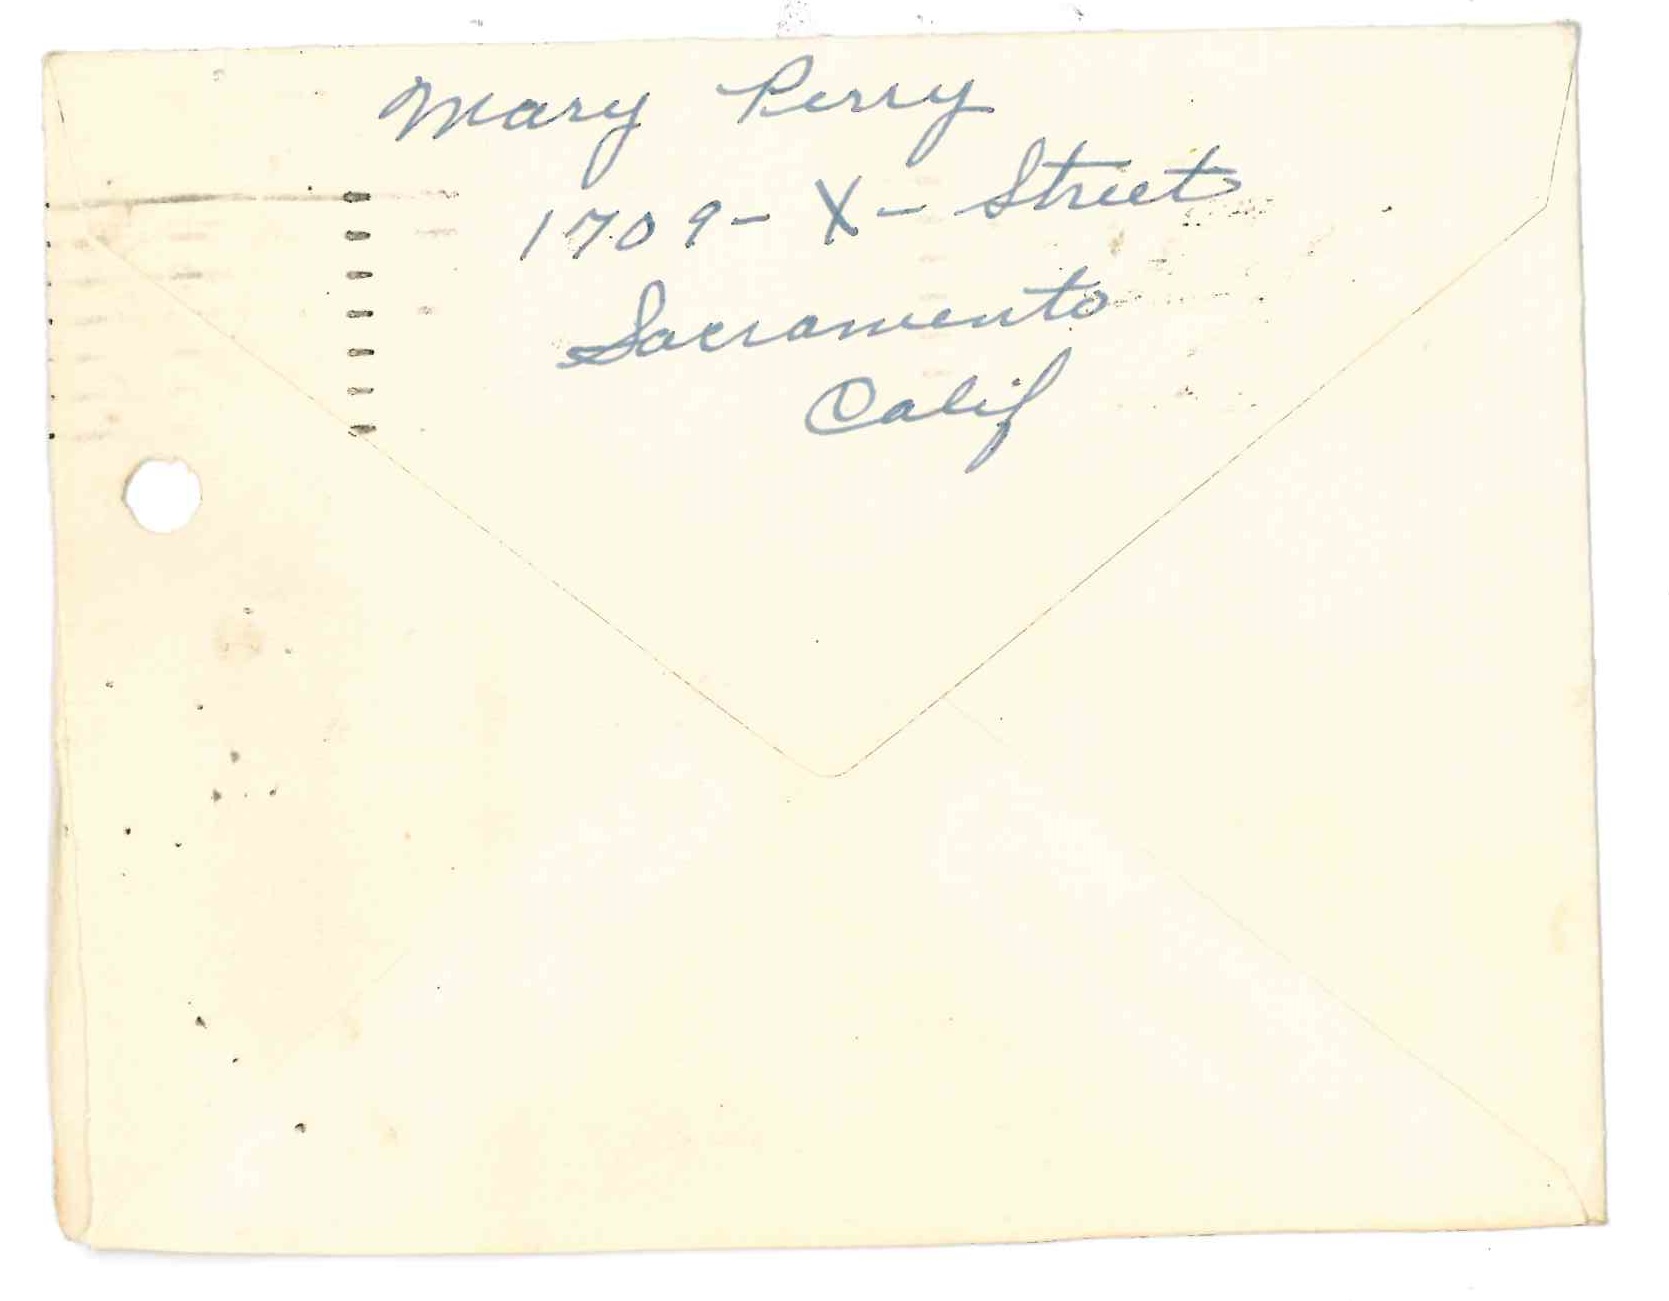 Mary Perry
1709- X- Street
Sacramento
Calif